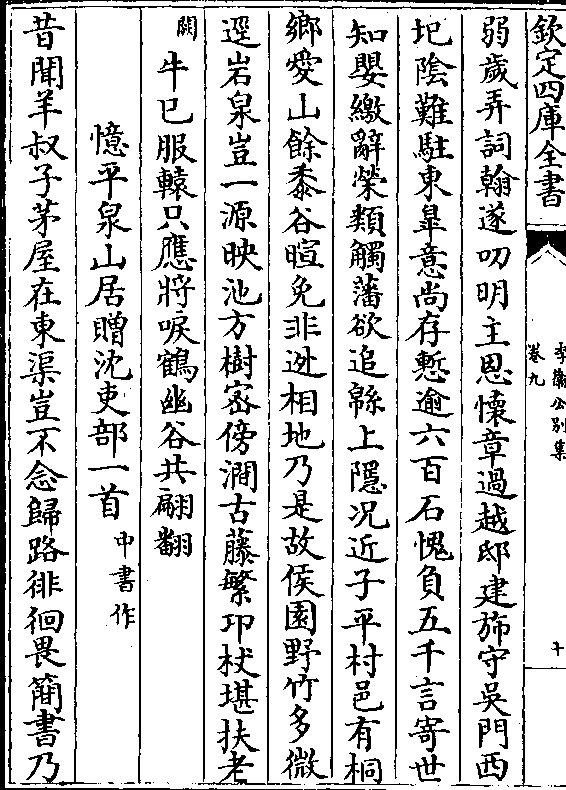 欽定四庫全書
李衛公别集
卷九
十
弱歲弄詞翰遂叨明主恩懷章過越邸建斾守吳門西
圯陰難駐東臯意尚存慙逾六百石愧負五千言寄世
知嬰繳辭榮類觸藩欲追緜上隱况近子平村邑有桐
鄉愛山餘黍谷暄免非逊相地乃是故侯園野竹多微
逕岩泉豈一源映池方樹宻傍澗古藤繁卭杖堪扶老
闕牛已服轅只應將唳鶴幽谷共翩翻
憶平泉山居贈沈吏部一首中書作
昔聞羊叔子茅屋在東渠豈不念歸路徘徊畏簡書乃